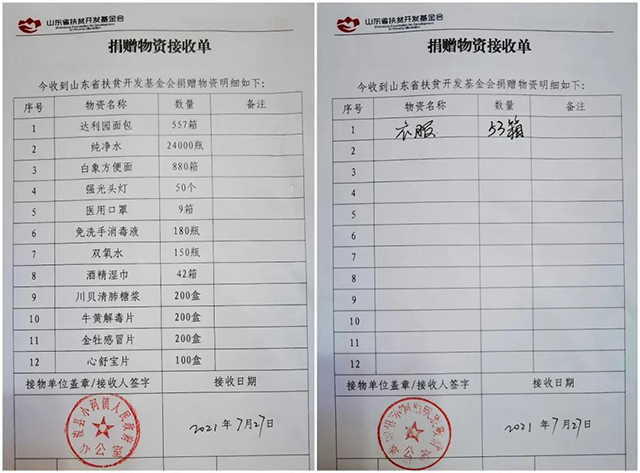 山东省扶贫开发基金会
捐赠物资接收单
今收到山东省扶贫开发基金会捐赠物资明细如下：
序号 物资名称 数量 备注
1 达利园面包 557箱
2 纯净水 24000瓶
3 白象方便面 880箱
4 强光头灯 50个
5 医用口罩 9箱
6 免洗手消毒液 180瓶
7 双氧水 150瓶
8 酒精湿巾 42箱
9 川贝清肺糖浆 200盒
10 牛黄解毒片 200盒
11 金牡感冒片 200盒
12 心舒宝片 100盒
接物单位盖章/接收人签字 接收日期
浚县小河镇人民政府
办公室
2021年7月27日
山东省扶贫开发基金会
捐赠物资接收单
今收到山东省扶贫开发基金会捐赠物资明细如下：
序号 物资名称 数量 备注
1 衣服 53箱
2
3
4
5
6
7
8
9
10
11
12
接物单位盖章/接收人签字 接收日期
2021年7月27日